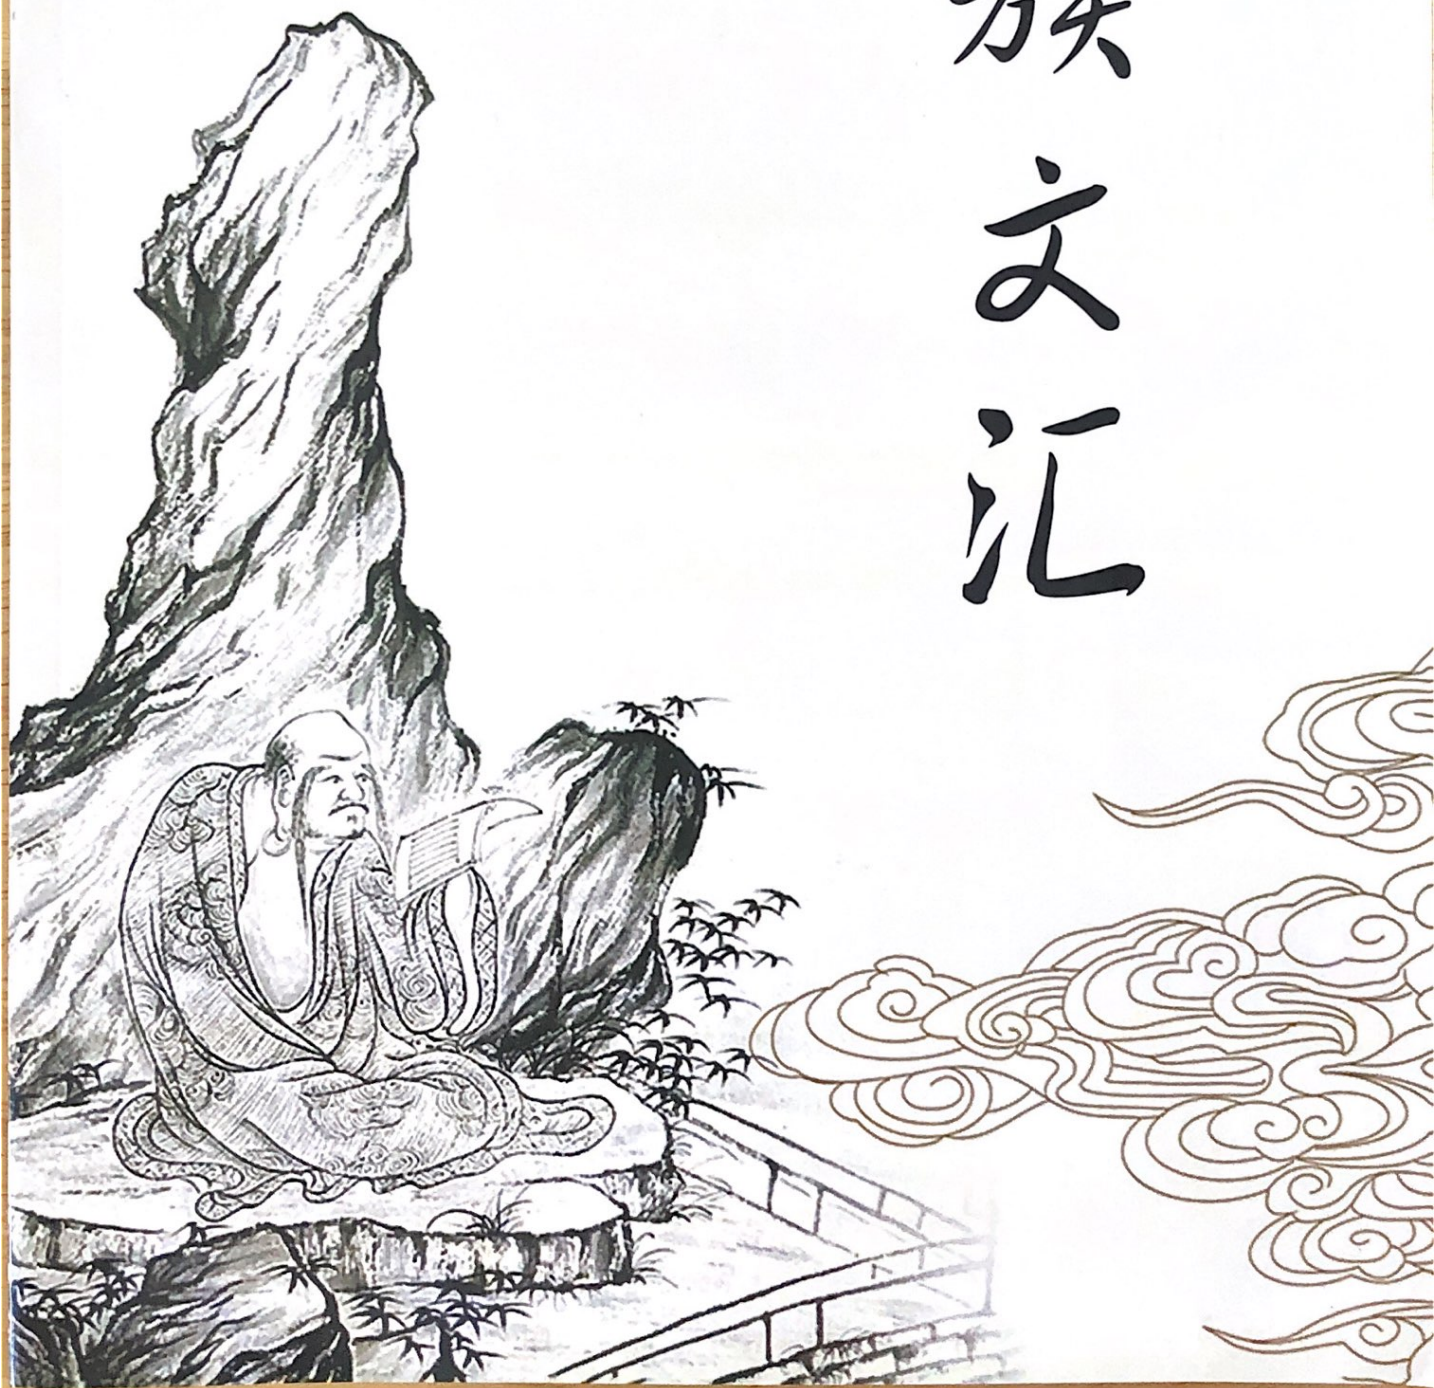 族文汇